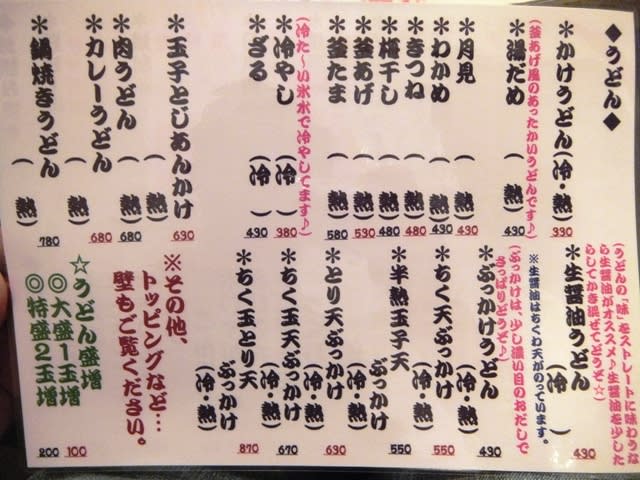 ◆うどん◆
＊かけうどん（冷・熱） 330
＊湯だめ （ 熱） 430
（釜あげ風のあったかいうどんです♪）
＊月見 （ 熱） 430
＊わかめ （ 熱） 430
＊きつね （ 熱） 480
＊梅干し （ 熱） 480
＊釜あげ （ 熱） 530
＊釜たま （ 熱） 580
（冷た～い氷水で冷やしてます♪）
＊冷やし （冷 ） 380
＊ざる （冷 ） 430
＊玉子とじあんかけ （ 熱） 630
＊肉うどん （ 熱） 680
＊カレーうどん （ 熱） 680
＊鍋焼きうどん （ 熱） 780
（うどんの「味」をストレートに味わうなら生醤油がオススメ♪生醤油を少したらしてかき混ぜてどうぞ☆）
＊生醤油うどん （冷 ） 430
※生醤油はちくわ天がのっています。
（ぶっかけは、少し濃い目のおだしでさっぱりどうぞ♪）
＊ぶっかけうどん （冷・熱） 430
＊ちく天ぶっかけ （冷・熱） 550
＊半熟玉子天ぶっかけ （冷・熱） 550
＊とり天ぶっかけ （冷・熱） 630
＊ちく玉天ぶっかけ （冷・熱） 670
＊ちく玉とり天ぶっかけ （冷・熱） 870
※その他、
トッピングなど…
壁もご覧ください。
☆うどん盛増
◎大盛１玉増 100
◎特盛２玉増 200